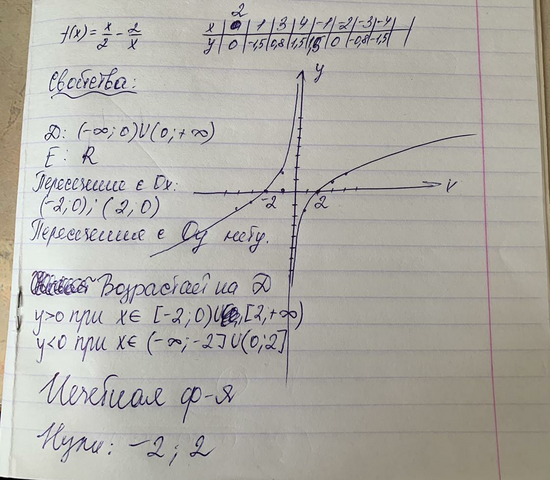 2
f(x) = x/2 - 2/x
x | 0 | 1 | 3 | 4 | -1 | -2 | -3 | -4 |
y | 0 | -1,5 | 0,8 | 1,5 | 1,5 | 0 | -0,8 | -1,5 |
Свойства:
y
D: (-∞; 0)U(0; +∞)
E: R
Пересечение с Ox:
x
(-2,0); (2,0)
-2 2
Пересечение с Oy нету.
Возрастает на D
y>0 при x∈ [-2;0)U[2,+∞)
y<0 при x∈ (-∞;-2]U(0;2]
Нечетная ф-я
Нули: -2; 2